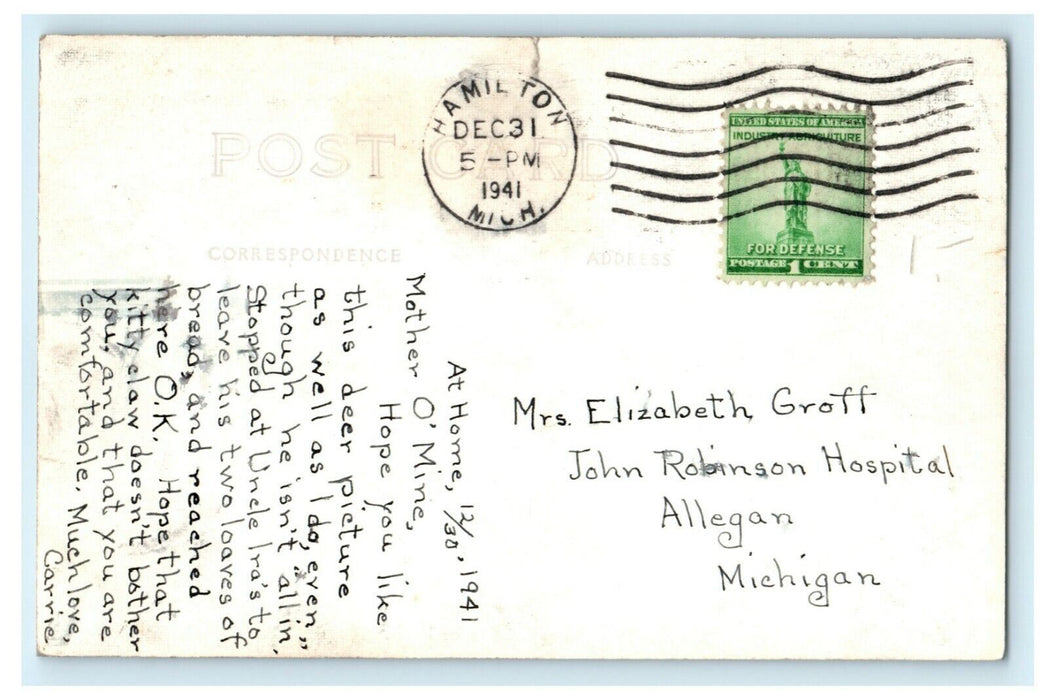 POST CARD
HAMILTON
DEC 31
5-PM
1941
MICH.
UNITED STATES OF AMERICA
INDUSTRY AGRICULTURE
FOR DEFENSE
POSTAGE 1 CENT
CORRESPONDENCE
ADDRESS
At Home, 12/30, 1941
Mother O' Mine,
Hope you like
this deer picture
as well as I do, even
though he isn't "all in."
Stopped at Uncle Ira's to
leave his two loaves of
bread, and reached
here O.K. Hope that
kitty claw doesn't bother
you, and that you are
comfortable. Much love,
Carrie
Mrs. Elizabeth Groff
John Robinson Hospital
Allegan
Michigan